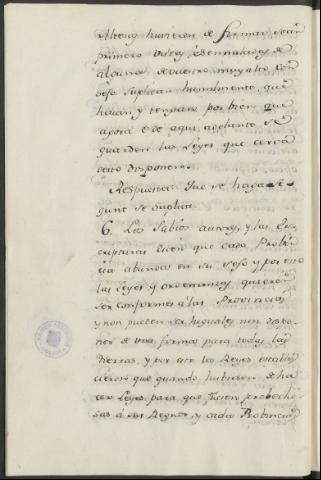 Alteza huvieren de firmar, sean
primero vistos, é esaminados de
algunos de vuestro muy alto con
sejo Suplican humilmente, que
hayan, y tengan por bien que
agora é de aqui adelante se
guarden las Leyes que cerca
desto disponen.
Respuesta: Que se haga se
gunt se suplica
6. Los Sabios autores, y las Es
cripturas dicen que cada Probin
cia abunda en su seso y por eso
las leyes y ordenanzas quieren
ser conformes á las Provincias
y non pueden ser higuales nin dispo
ner de una forma para todas las
tierras, y por eso los Reyes estable
cieron que quando hubiesen de ha
cer Leyes para que fuesen probecho
sas á sus Regnos, y cada Robincia